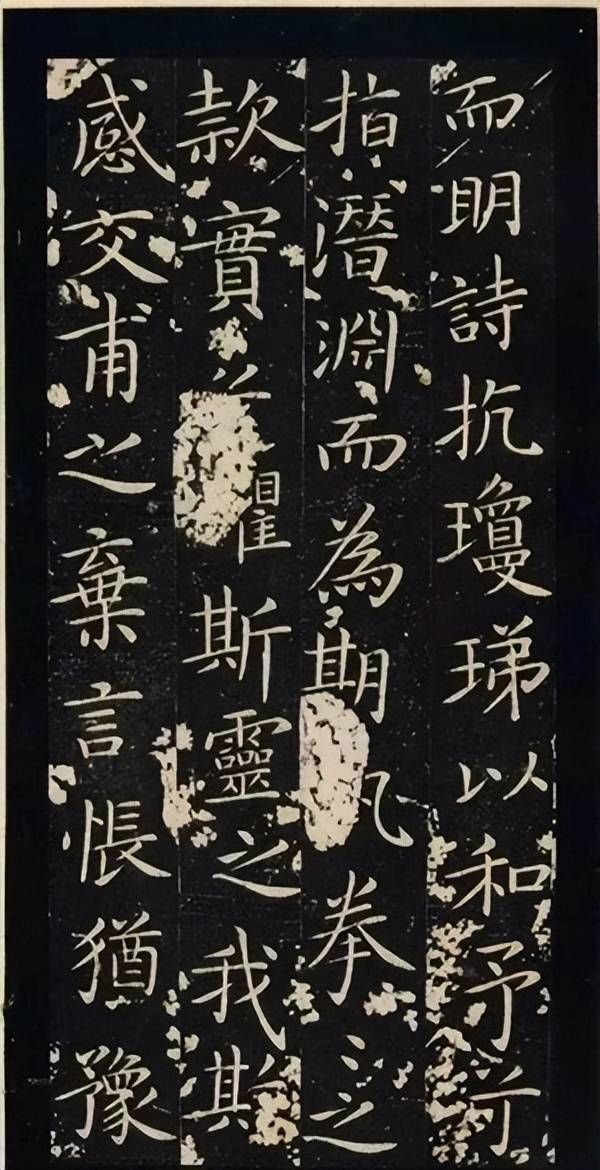 而明詩抗瓊珶以和予兮
指潛淵而為期拳〻之
款實斯靈之我欺
感交甫之棄言悵猶豫